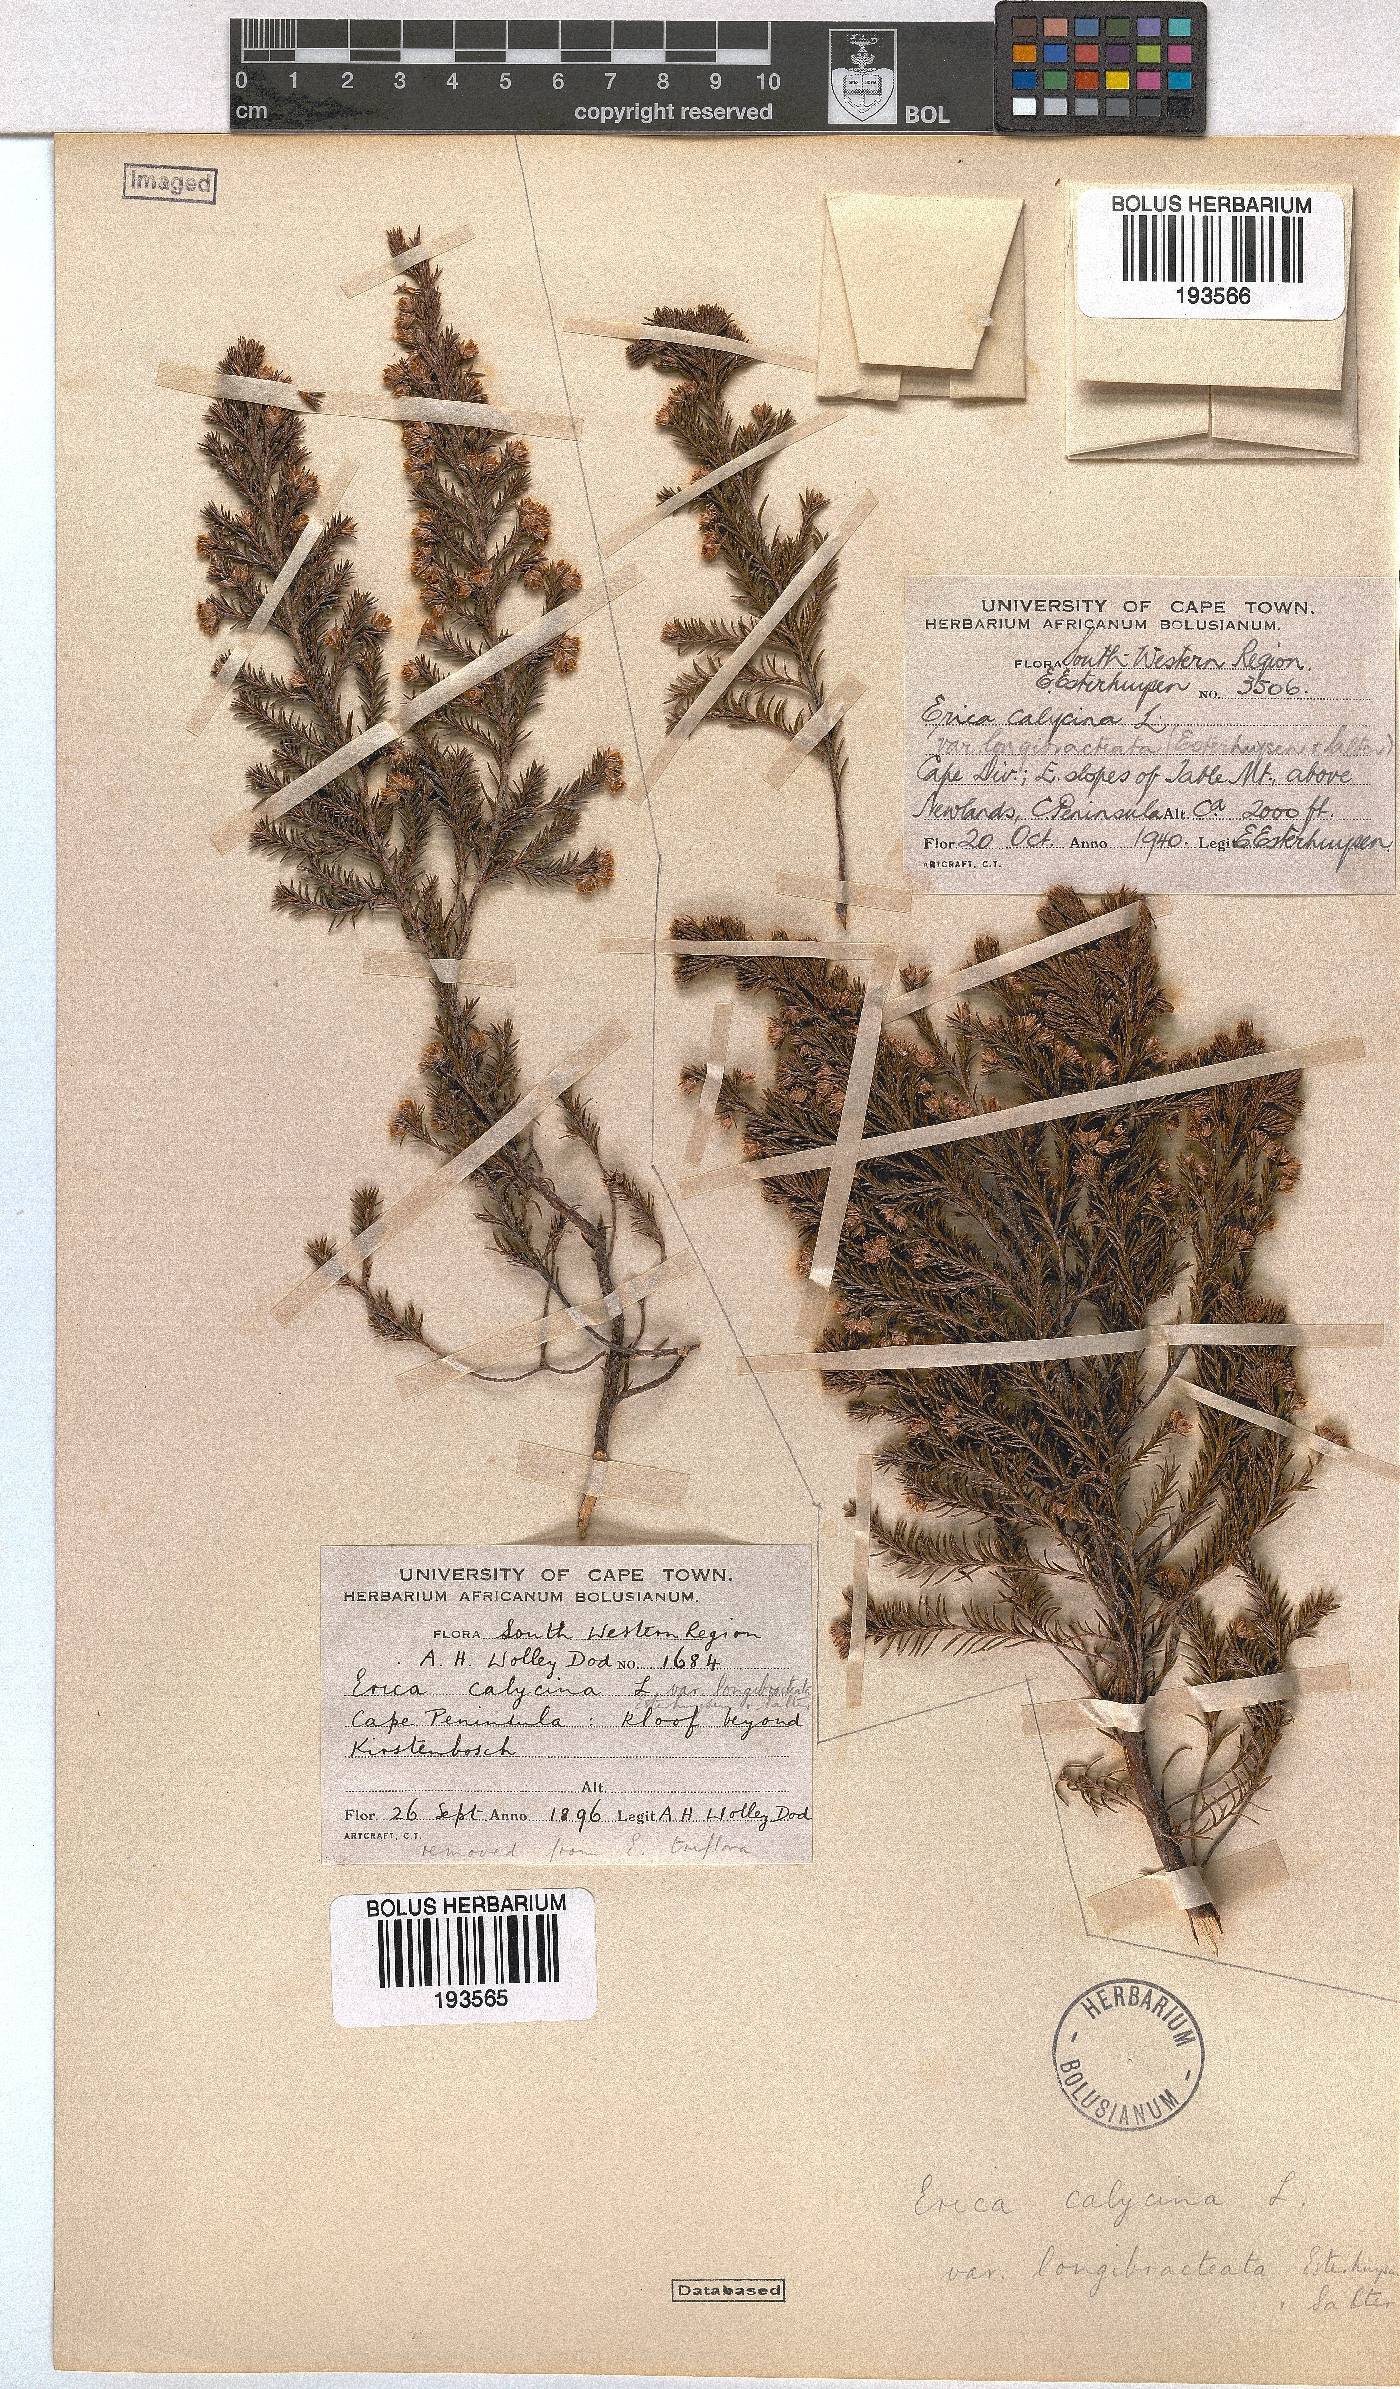 0 1 2 3 4 5 6 7 8 9 10
cm copyright reserved BOL
Imaged
BOLUS HERBARIUM
193566
UNIVERSITY OF CAPE TOWN.
HERBARIUM AFRICANUM BOLUSIANUM.
FLORA South-Western Region.
E Esterhuysen NO. 3506.
Erica calycina L
var longibracteata (Esterhuysen & Salter)
Cape Div.; E. slopes of Table Mt., above
Newlands, C. Peninsula Alt. Ca 2000 ft.
Flor 20 Oct. Anno 1940. Legit E Esterhuysen.
ARTCRAFT, C.T.
UNIVERSITY OF CAPE TOWN.
HERBARIUM AFRICANUM BOLUSIANUM.
FLORA South Western Region
A. H. Wolley Dod NO. 1684
Erica calycina L. var. longibracteata
Cape Peninsula : Kloof beyond
Kirstenbosch
Alt.
Flor. 26 Sept. Anno 1896 Legit A H Wolley Dod
ARTCRAFT, C.T.
removed from E. triflora
BOLUS HERBARIUM
193565
HERBARIUM
BOLUSIANUM
Erica calycina L.
var. longibracteata Esterhuysen
Salter
Databased